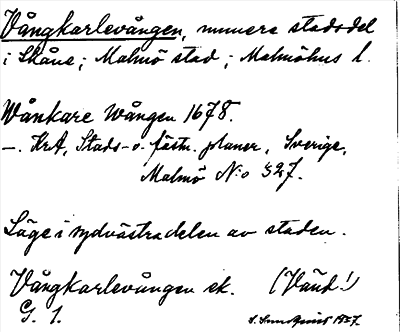 Vångkarlevången, numera stadsdel
i Skåne; Malmö stad; Malmöhus l.
Wånkare Wången 1678.
–. KrA, Stads- o. fästn. planer, Sverige,
Malmö N:o 327.
Läge i sydvästra delen av staden.
Vångkarlevången ek. (Vänd!)
G. 1.
S. Sundquist 1957.